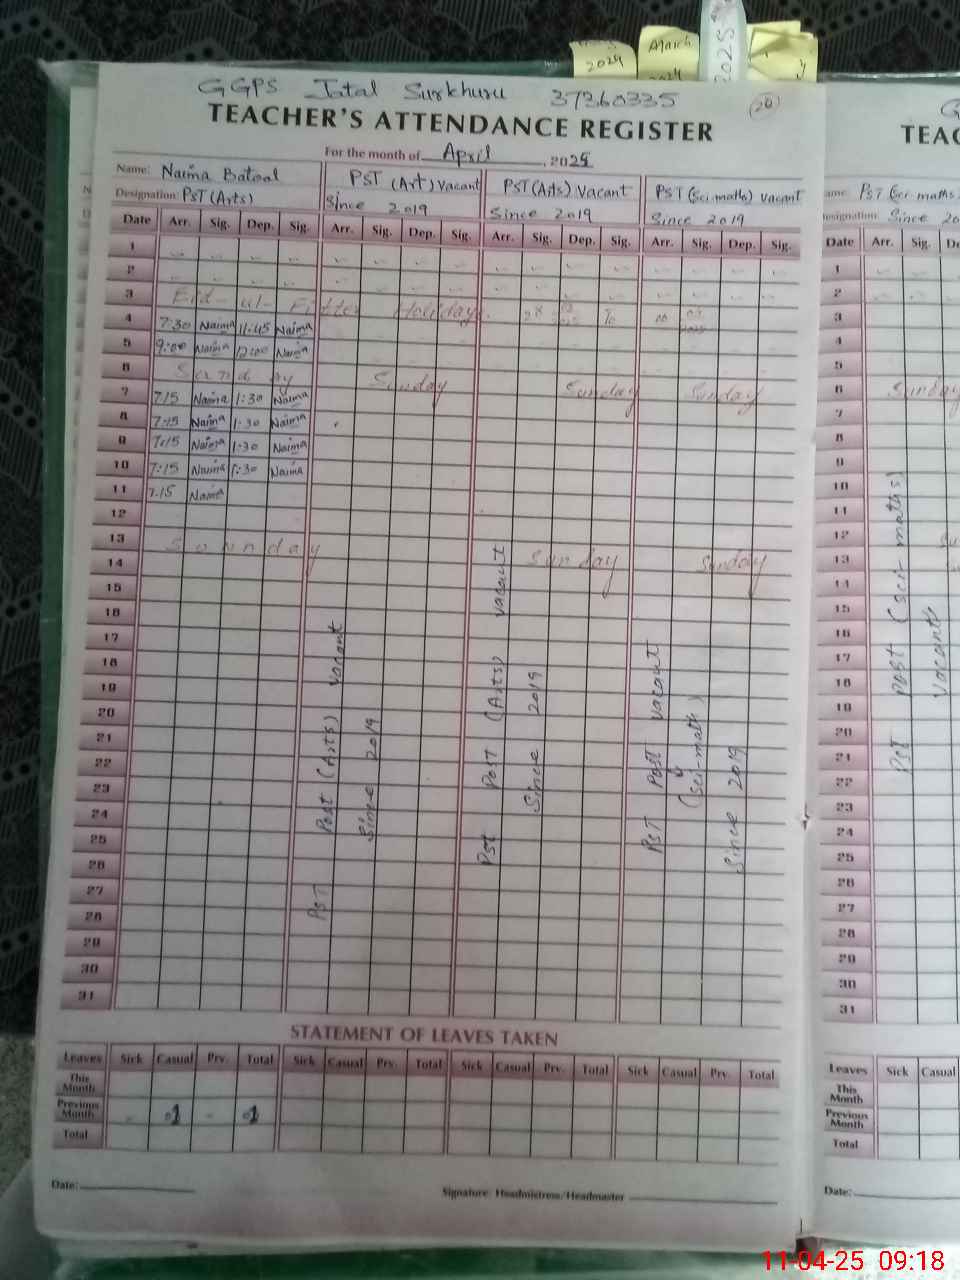 March
2024
2024
2025
GGPS Jatal Surkhuru 37360335
20
TEACHER'S ATTENDANCE REGISTER
For the month of April, 2025
Name: Naima Batool PST (Art) vacant PST (Arts) vacant PST (Sci-maths) vacant
Designation: PST (Arts) Since 2019 Since 2019 Since 2019
Date Arr. Sig. Dep. Sig. Arr. Sig. Dep. Sig. Arr. Sig. Dep. Sig. Arr. Sig. Dep. Sig.
1
2
3 Eid-ul-Fitter Holidays.
4 7:30 Naima 11:45 Naima
5 9:00 Naima 12:00 Naima
6 Sunday Sunday Sunday Sunday
7 7:15 Naima 1:30 Naima
8 7:15 Naima 1:30 Naima
9 7:15 Naima 1:30 Naima
10 7:15 Naima 1:30 Naima
11 7:15 Naima
12
13 Sounday Sunday Sunday
14
15
16
17
18
19
20
21
22
23
24
25
26
27
28
29
30
31
PST Post (Arts) vacant
Since 2019
PST Post (Arts) vacant
Since 2019
PST Post vacant
(sci-math)
Since 2019
STATEMENT OF LEAVES TAKEN
Leaves Sick Casual Prv. Total Sick Casual Prv. Total Sick Casual Prv. Total Sick Casual Prv. Total
This Month
Previous Month 01 - 01
Total
Date: Signature: Headmistress/Headmaster
TEAC
PST (Sci-maths)
Since 20
Date Arr. Sig. De
1
2
3
4
5
6 Sunday
7
8
9
10
11
12
13
14
15
16
17
18
19
20
21
22
23
24
25
26
27
28
29
30
31
PST Post (sci-maths)
vacant
Leaves Sick Casual
This Month
Previous Month
Total
Date:
11-04-25 09:18